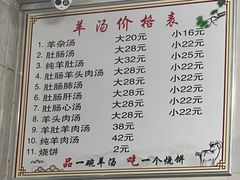 羊汤价格表
1. 羊杂汤 大20元 小16元
2. 肚肠汤 大28元 小22元
3. 纯羊肚汤 大28元 小25元
4. 肚肠羊头肉汤 大28元 小22元
5. 肚肠肺汤 大28元 小22元
6. 肚肠肝汤 大28元 小22元
7. 肚肠心汤 大28元 小22元
8. 羊头肉汤 大28元 小22元
9. 羊肚羊肉汤 38元
10. 纯羊肉汤 42元
11. 烧饼 2元
品一碗羊汤 吃一个烧饼